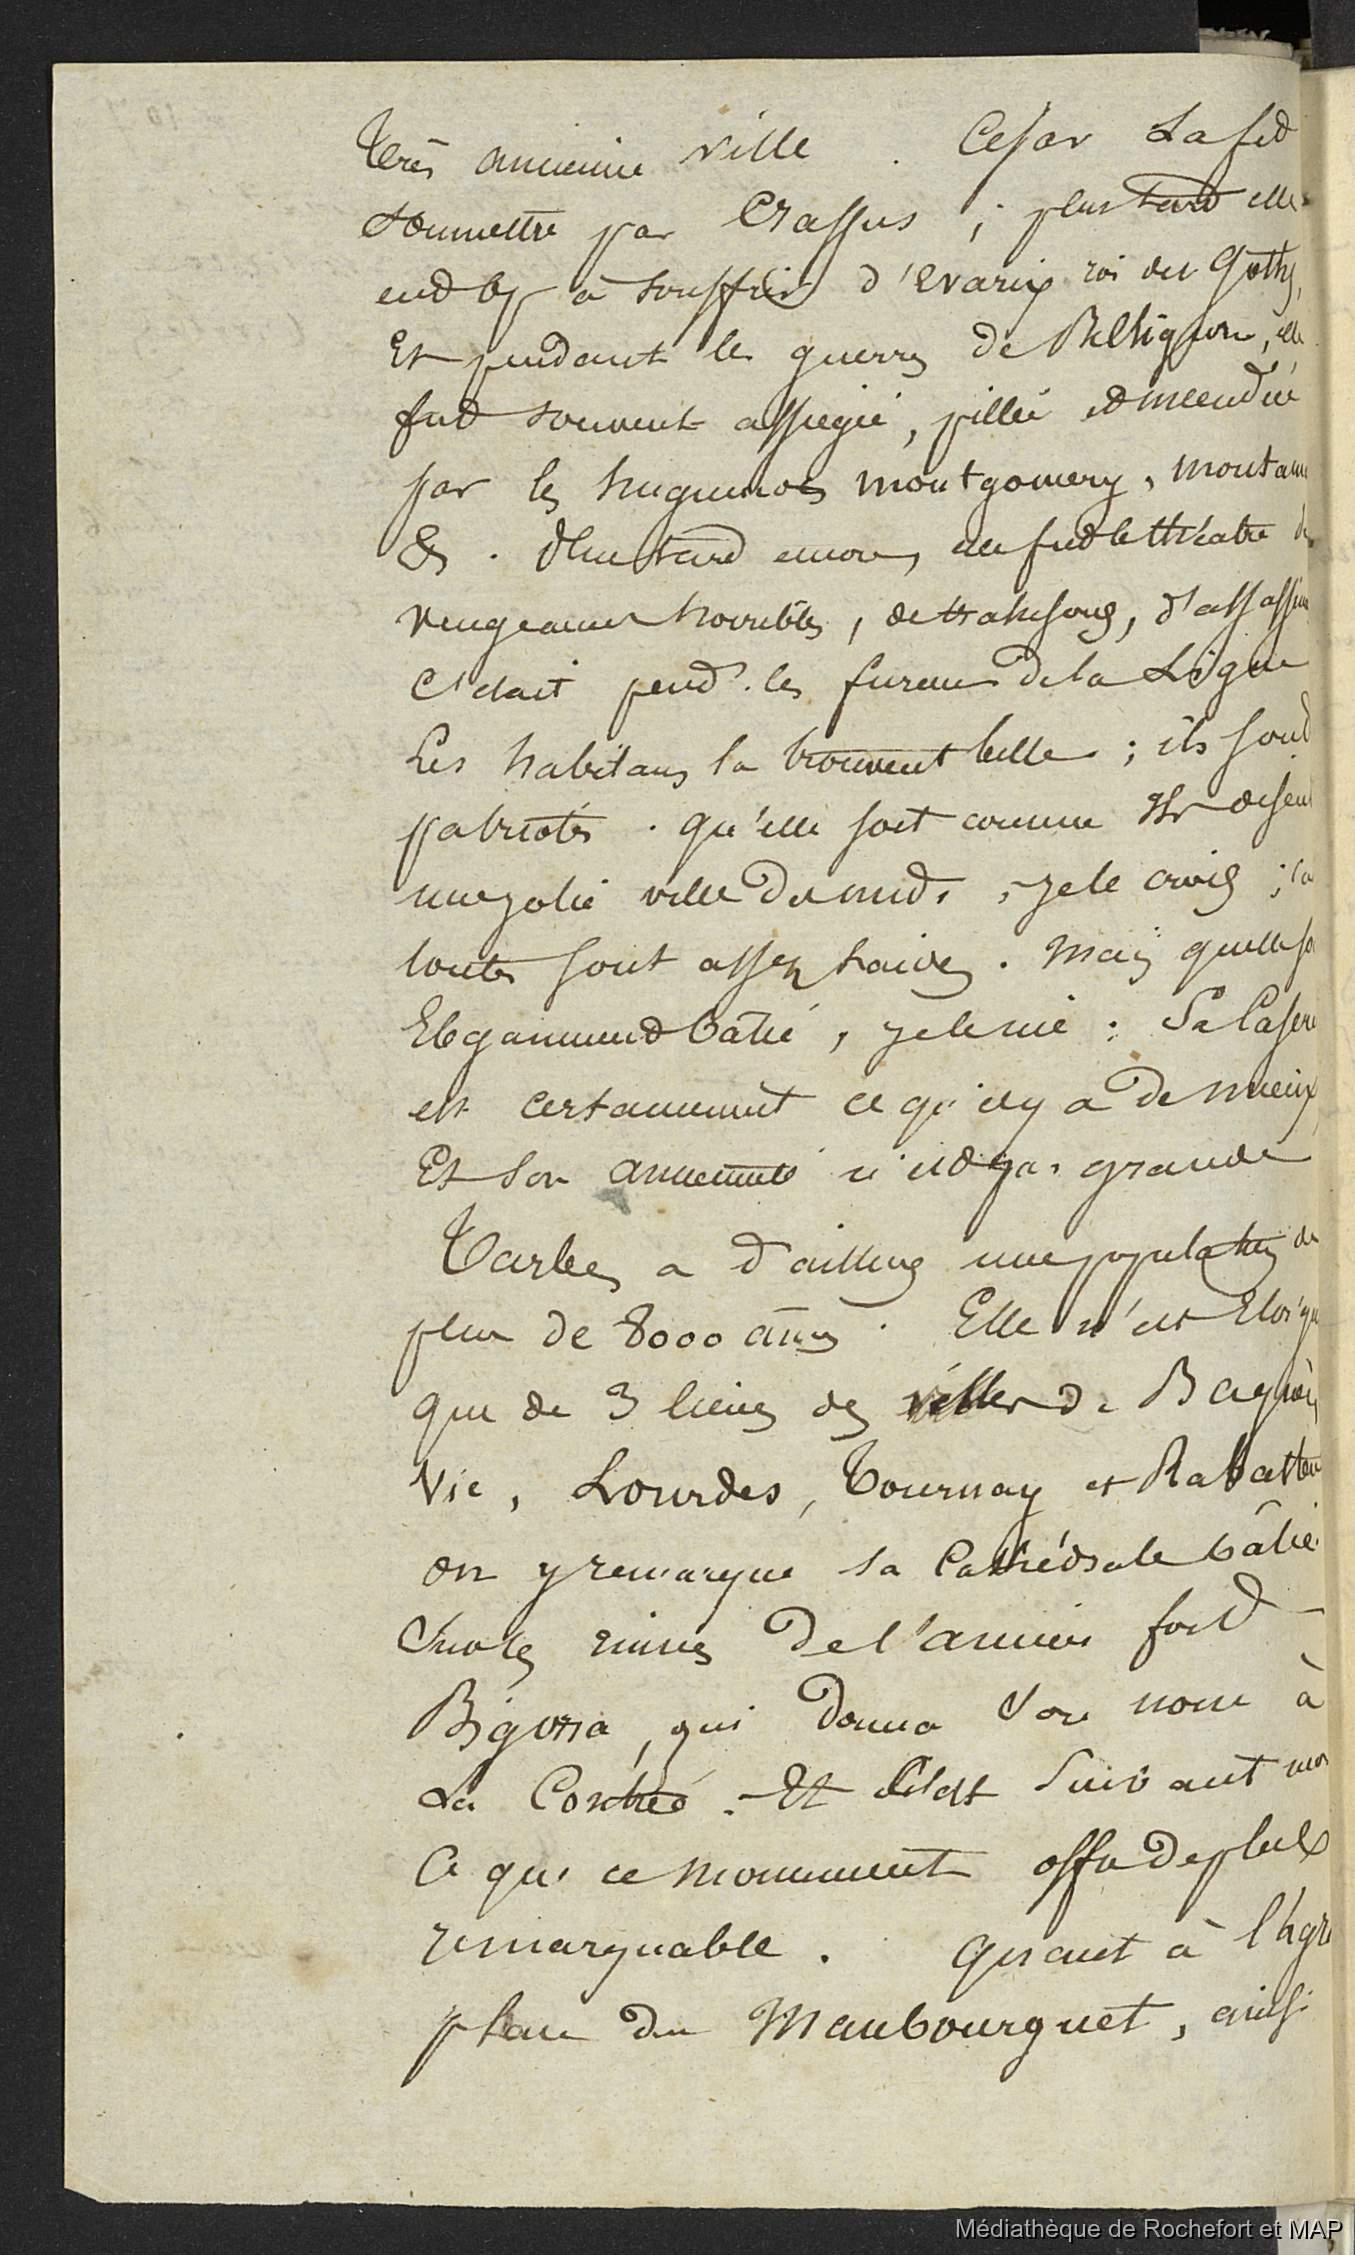 très ancienne ville . César la fit
soumettre par Crassus ; plus tard elle
eut bp à souffrir d'Evarix roi des Goths,
Et pendant les guerres de Religion, elle
fut souvent assiegée, pillée et incendiée
par les huguenots montgomery, montam
& . Plus tard encore, elle fut le théatre de
vengeances horribles, de trahisons, d'assassin
C'était pend.t les fureurs de la Ligue
Les habitans la trouvent belle ; ils sont
patriotes . qu'elle soit comme ils disent
une jolie ville du midi, je le crois ; ca
toutes sont assez laides . Mais quelle so
Elégamment bâtie, je le nie : Sa Caserne
est certainement ce qu'il y a de mieux,
Et son ancienneté n'est pas grande
Tarbes a d'ailleurs une population de
plus de 8000 âmes . Elle n'est Eloignée
que de 3 lieues des villes de Bagnères
Vic, Lourdes, Tournay et Rabastens
on y remarque sa Cathédrale bâtie
sur les ruines de l'ancien fort
Bigorra, qui donna son nom à
La Contrée . Et c'est suivant moi
Ce que ce monument offre de plus
remarquable . Quant à l'Agré
place du Maubourguet, ainsi
Médiathèque de Rochefort et MAP